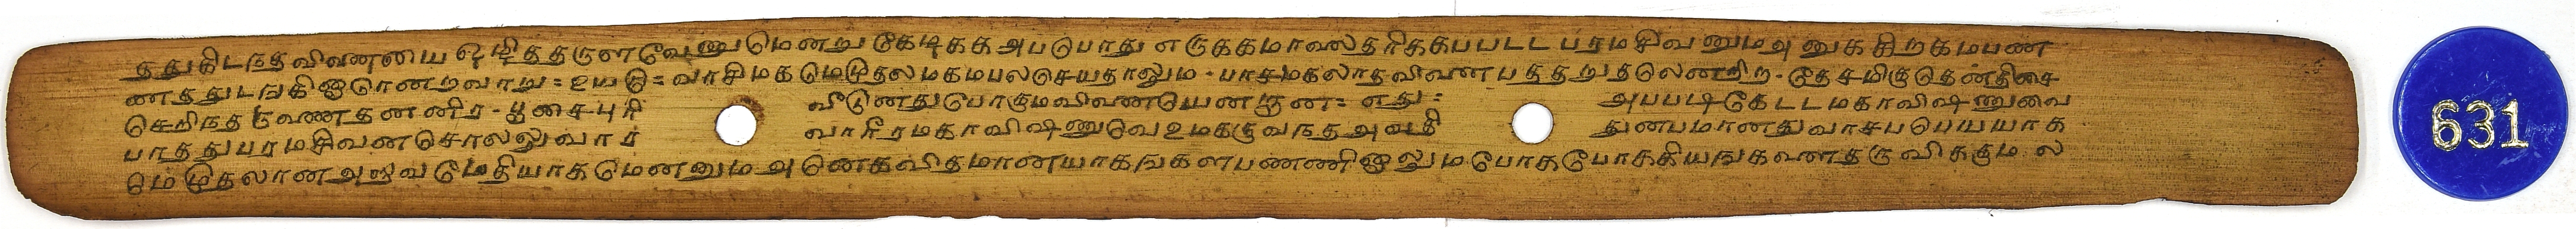 த்துகிடந்தவிவண்மைய ஒழித்தருளவேணுமென்று கேழ்க்க அப்பொது எடுக்கமாவஸ்தரிக்கப்பட்ட பரமசிவனும் அனுக்கிறகமபண
ணத்துடங்கினாரென்றவாறு = உயரு = வாசிமகமெமுதலமகம்பலசெயதாலும் - பாசமகலாதவினைபத்தறுதலென்றிற - தேசமிகுதென்திசை
செறிந்த குவணதன்னிர - பூசைபுரி வீடுனதுபோகும்வினையென்குன = எது = அப்படிகேட்டமகாவிஷ்ணுவை
பாத்துபரமசிவன்சொல்லுவார் வாரீரமகாவிஷ்ணுவெஉமக்குவந்த அவதி துன்பமானதுவாசபபெயயாக
மேமுதலான அஸுவமேதியாகமென்னும் அனெகவிதமானயாகங்களபண்ணினாலும்போகபோக்கியங்களைதருவிக்கும் ல
631